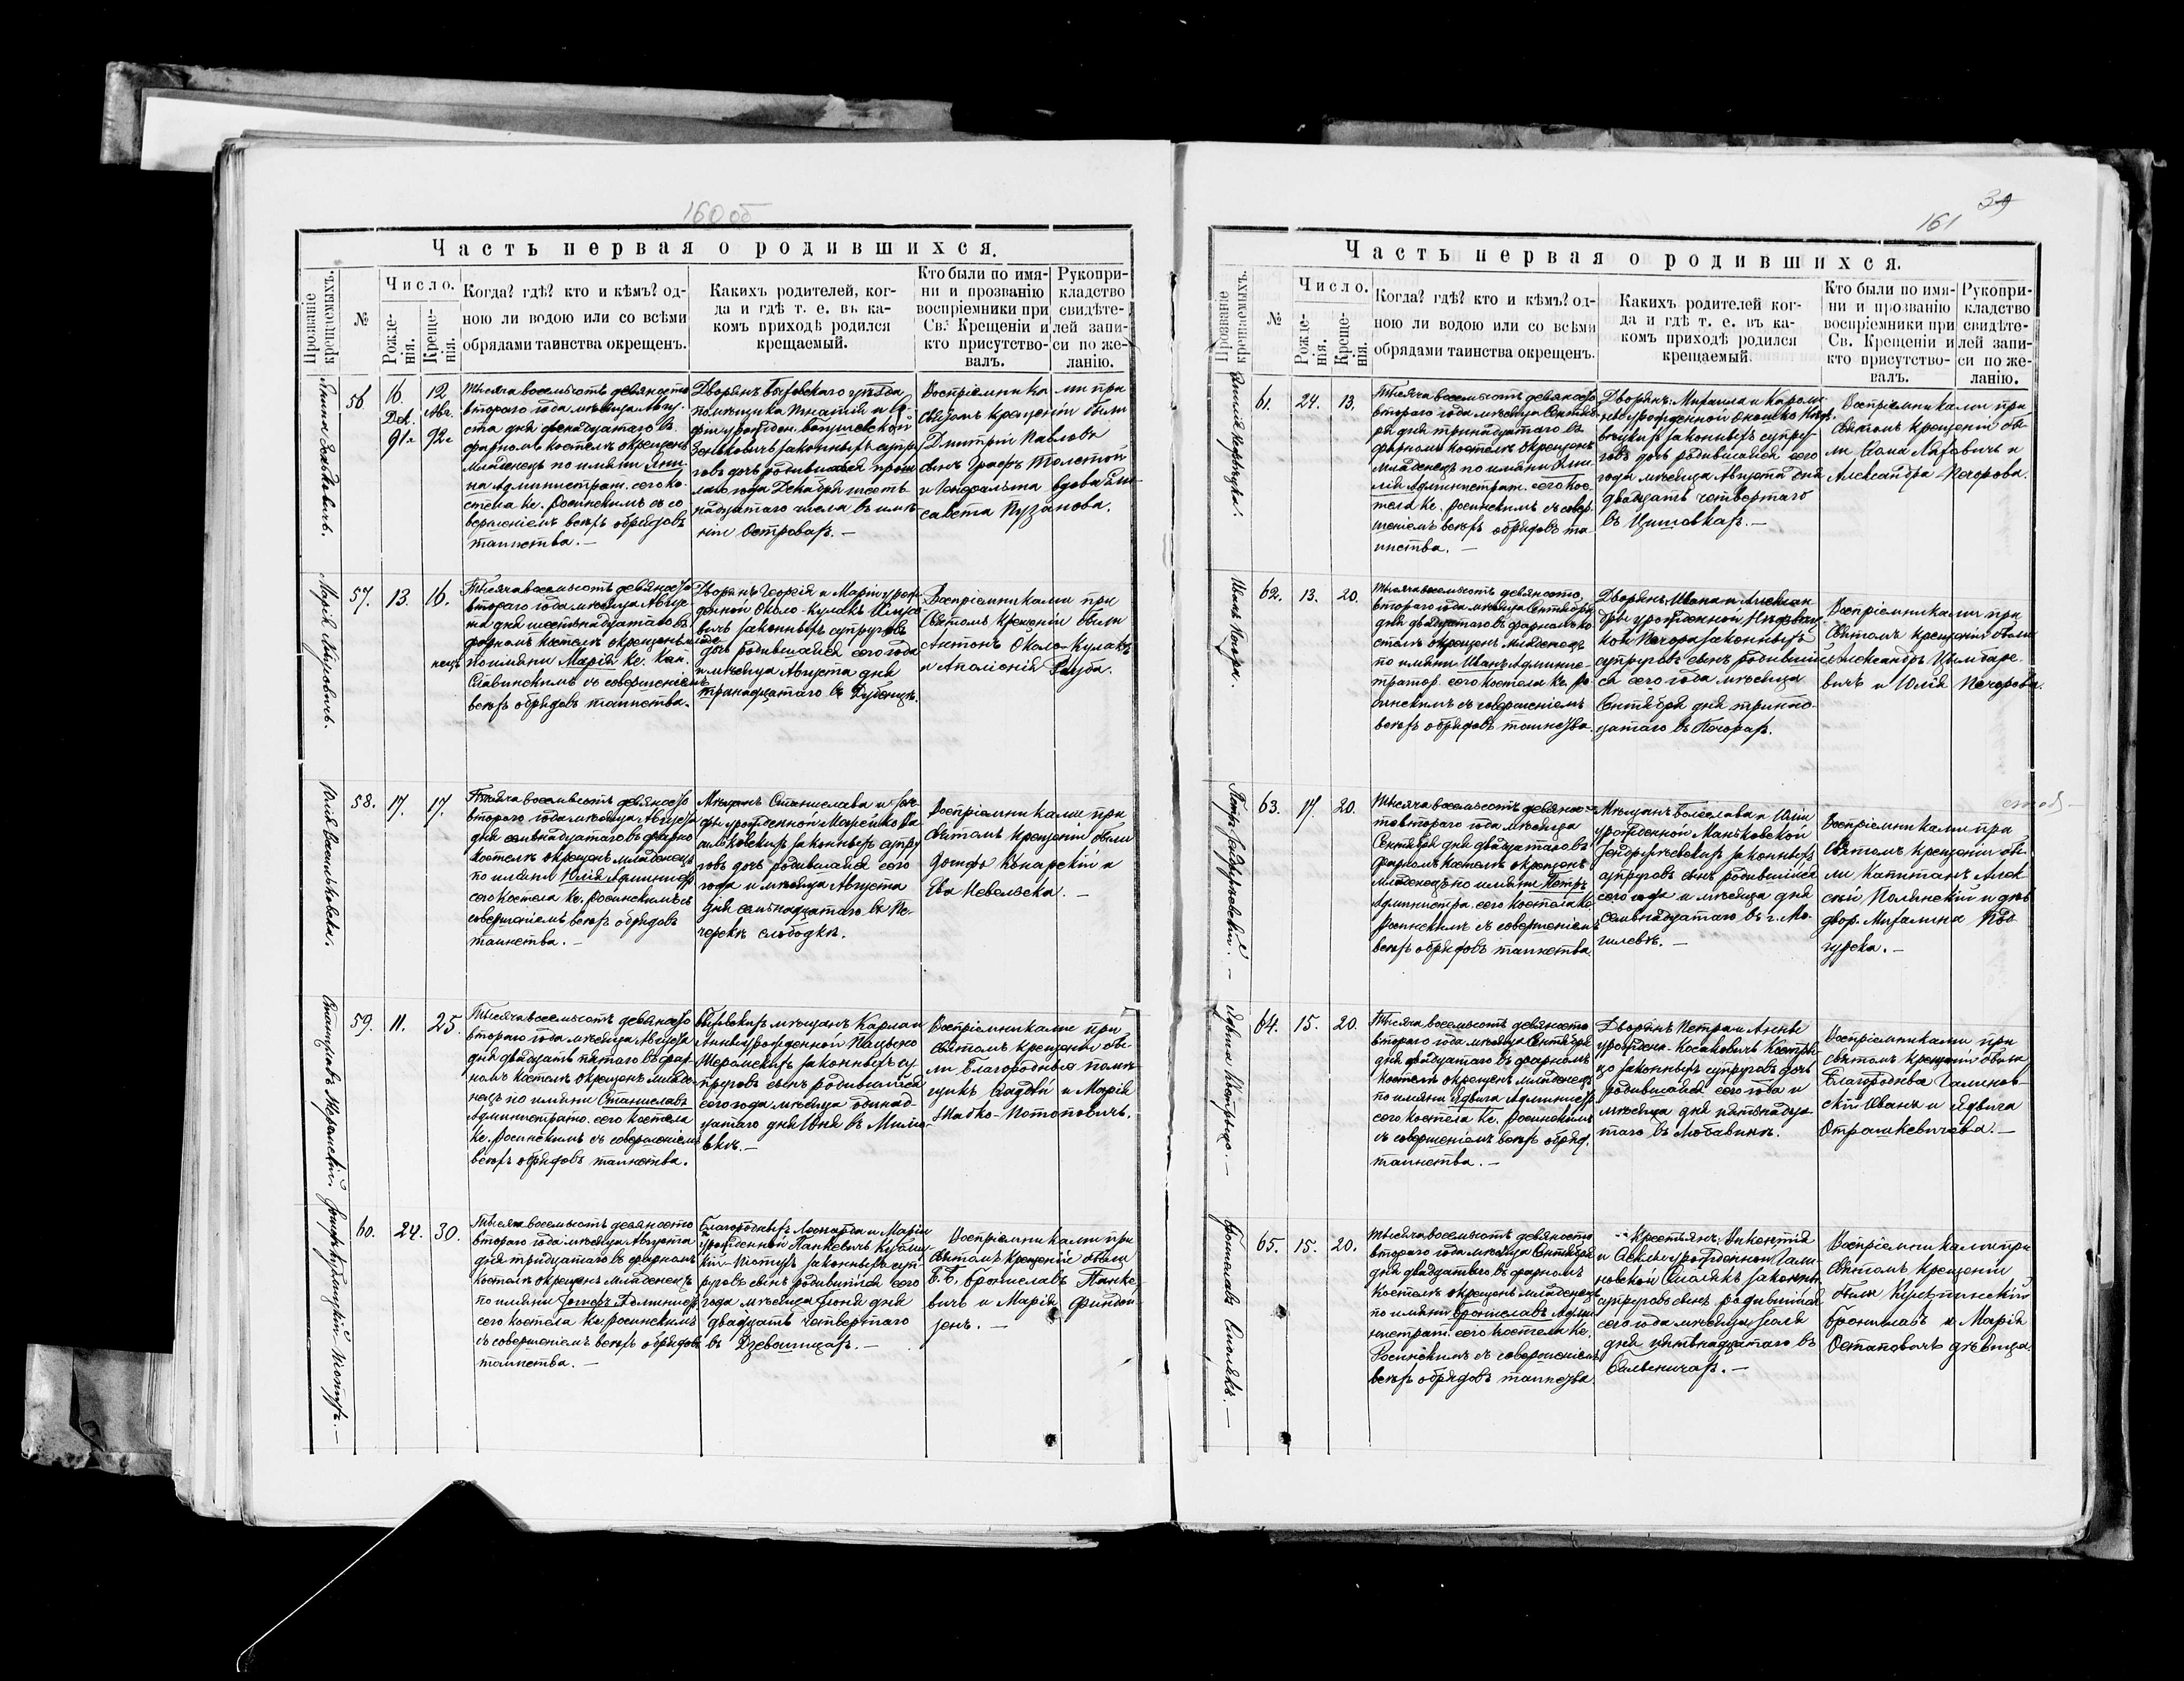 160 об
Часть первая о родившихся.
Прозваніе крещаемыхъ.
№
Число.
Рожденія.
Крещенія.
Когда? гдѣ? кто и кѣмъ? од-
ною ли водою или со всѣми
обрядами таинства окрещенъ.
Какихъ родителей, ког-
да и гдѣ т. е. въ ка-
комъ приходѣ родился
крещаемый.
Кто были по имя-
ни и прозванію
воспріемники при
Св. Крещеніи и
кто присутство-
валъ.
Рукопри-
кладство
свидѣте-
лей запи-
си по же-
ланію.
56.
16.
Дек.
91 г
12
Авг.
92 г
Тысяча восемьсотъ девяносто
втораго года мѣсяца Авгу-
ста дня двенадцатаго въ
фарномъ костелѣ окрещенъ
младенецъ по имяни Яни-
на Администрат. сего ко-
стела Кс. Росинскимъ съ со
вершеніемъ всѣхъ обрядовъ
таинства. —
Дворянъ Быховскаго уѣзда
помѣщика Игнатія и
законныхъ супру
говъ дочь родившаяся прош
лаго года Декабря шест
надцатаго числа въ имѣ
ніи Островахъ. —
Воспріемниками при
Святомъ Крещеніи были
Дмитрій Павловъ
сынъ Графъ Толстой
и Генеральша вдова Ели-
савета Пузанова.
57.
13.
16.
Тысяча восемьсотъ девяносто
втораго года мѣсяца Авгус
та дня шестнадцатаго въ
фарномъ костелѣ окрещенъ младе
нецъ по имяни Марія Кс. Кан.
Славинскимъ съ совершеніемъ
всѣхъ обрядовъ таинства.
Дворянъ Георгія и Маріи урож
денной Около-Кулакъ
вичъ законныхъ супруговъ
дочь родившаяся сего года
и мѣсяца Августа дня
тринадцатаго въ Дубенцѣ.
Воспріемниками при
Святомъ Крещеніи были
Антонъ Около-Кулакъ
и Аполіонія
58.
17.
17.
Юлія Васильковска.
Тысяча восемьсотъ девяносто
втораго года мѣсяца Августа
дня семнадцатаго въ фарно
костелѣ окрещенъ младенецъ
по имяни Юлія Администр
сего костела Кс. Росинскимъ съ
совершеніемъ всѣхъ обрядовъ
таинства. —
Мѣщанъ Станислава и
урожденной Марейко Ва
сильковскихъ законныхъ супру
говъ дочь родившаяся сего
года и мѣсяца Августа
дня семнадцатаго въ Пе-
черскѣ слободкѣ.
Воспріемниками при
Святомъ Крещеніи были
Іосифъ Конарскій и
Ева Невельска. —
59.
11.
25.
Тысяча восемьсотъ девяносто
втораго года мѣсяца Августа
дня двадцать пятаго въ фар
номъ костелѣ окрещенъ младе
нецъ по имяни Станиславъ
Администрато. сего костела
Кс. Росинскимъ съ совершеніемъ
всѣхъ обрядовъ таинства.
Быховскихъ мѣщанъ Карла и
Анны урожденной
законныхъ су
пруговъ сынъ родившійся
сего года мѣсяца одинад
цатаго дня Іюня въ
Воспріемниками при
святомъ крещеніи бы-
ли Благородные помѣ
щикъ Фаддѣй и Марія
Жабко-Потоповичъ.
60.
24.
30.
Тысяча восемьсотъ девяносто
втораго года мѣсяца Августа
дня тридцатаго въ фарномъ
костелѣ окрещенъ младенецъ
по имяни Іосифъ Администр.
сего костела Кс. Росинскимъ
съ совершеніемъ всѣхъ обрядовъ
таинства. —
Благородныхъ Леонарда и Маріи
урожденной Панкевичъ
законныхъ суп
руговъ сынъ родившійся сего
года мѣсяца Іюня дня
двадцать четвертаго
въ
Воспріемниками при
Святомъ Крещеніи были
Б. Б. Брониславъ Панке
вичъ и Марія
39
161
Часть первая о родившихся.
Прозваніе крещаемыхъ.
№
Число.
Рожденія.
Крещенія.
Когда? гдѣ? кто и кѣмъ? од-
ною ли водою или со всѣми
обрядами таинства окрещенъ.
Какихъ родителей ког-
да и гдѣ т. е. въ ка-
комъ приходѣ родился
крещаемый.
Кто были по имя-
ни и прозванію
воспріемники при
Св. Крещеніи и
кто присутство-
валъ.
Рукопри-
кладство
свидѣте-
лей запи-
си по же-
ланію.
61.
24.
13.
Тысяча восемьсотъ девяносто
втораго года мѣсяца Сентяб
ря дня тринадцатаго въ
фарномъ костелѣ окрещенъ
младенецъ по имяни Эми-
лія Администрат. сего кос
тела Кс. Росинскимъ съ совер
шеніемъ всѣхъ обрядовъ та
инства. —
Дворянъ Михаила и Кароли
ны урожденной
законныхъ супру-
говъ дочь родившаяся сего
года мѣсяца Августа дня
двадцать четвертаго
въ —
Воспріемниками при
Святомъ Крещеніи бы-
ли и
Александра Печорова.
62.
13.
20.
Иванъ Печора.
Тысяча восемьсотъ девяносто
втораго года мѣсяца Сентября
дня двадцатаго въ фарномъ ко
стелѣ окрещенъ младенецъ
по имяни Иванъ Админис-
тратор. сего костела Кс. Ро
синскимъ съ совершеніемъ
всѣхъ обрядовъ таинства.
Дворянъ Ивана и Алексан
дры урожденной
кой Печора законныхъ
супруговъ сынъ родившій
ся сего года мѣсяца
Сентября дня тринад-
цатаго въ Печорахъ.
Воспріемниками при
Святомъ Крещеніи были
Александръ Цымбаре-
вичъ и Юлія Печорова.
63.
17.
20.
Тысяча восемьсотъ девянос
то втораго года мѣсяца
Сентября дня двадцатаго въ
фарномъ костелѣ окрещенъ
младенецъ по имяни Петръ
Администра. сего костела Кс
Росинскимъ съ совершеніемъ
всѣхъ обрядовъ таинства.
Мѣщанъ Болеслава и Юліи
урожденной Маньковской
законныхъ
супруговъ сынъ родившійся
сего года и мѣсяца дня
семнадцатаго въ г. Мо-
гилевѣ. —
Воспріемниками при
Святомъ Крещеніи бы-
ли Капитанъ Алек
сѣй Полянскій и дочь
двор. Михалина Под
гурска. —
64.
15.
20.
Тысяча восемьсотъ девяносто
втораго года мѣсяца Сентября
дня двадцатаго въ фарномъ
костелѣ окрещенъ младенецъ
по имяни Ядвига Администр
сего костела Кс. Росинскимъ
съ совершеніемъ всѣхъ обряд.
таинства. —
Дворянъ Петра и Анны
урожден. Косаковичъ
законныхъ супруговъ дочь
родившаяся сего года и
мѣсяца дня пятнадца
таго въ
Воспріемниками при
святомъ крещеніи были
Благородные Галинов-
скій Иванъ и Ядвига
Отрашкевичева. —
65.
15.
20.
Брониславъ Смолякъ. —
Тысяча восемьсотъ девяносто
втораго года мѣсяца Сентября
дня двадцатаго въ фарномъ
костелѣ окрещенъ младенецъ
по имяни Брониславъ Адми
нистрат. сего костела Кс.
Росинскимъ съ совершеніемъ
всѣхъ обрядовъ таинства
Крестьянъ Викентія
и урожденной Гали-
новской Смолякъ законны
супруговъ сынъ родившійся
сего года мѣсяца Іюля
дня пятнадцатаго въ
Воспріемниками при
Святомъ Крещеніи
были
Брониславъ и Марія
Остаповичъ дѣвица.